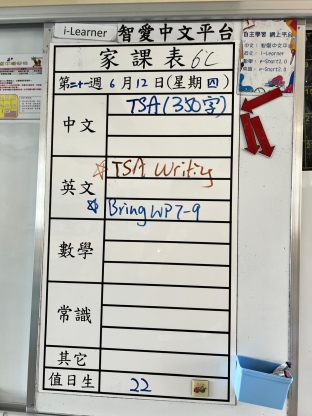 i-Learner 智愛中文平台
家課表 6C
第二十一週 6月12日(星期四)
中文
TSA(350字)
英文
☆ TSA Writing
☆ Bring WP7-9
數學
常識
其它
值日生 22
自主學習 網上平台
中文: 智愛中文平台
i-Learner
e-Smart2.0
e-Smart2.0